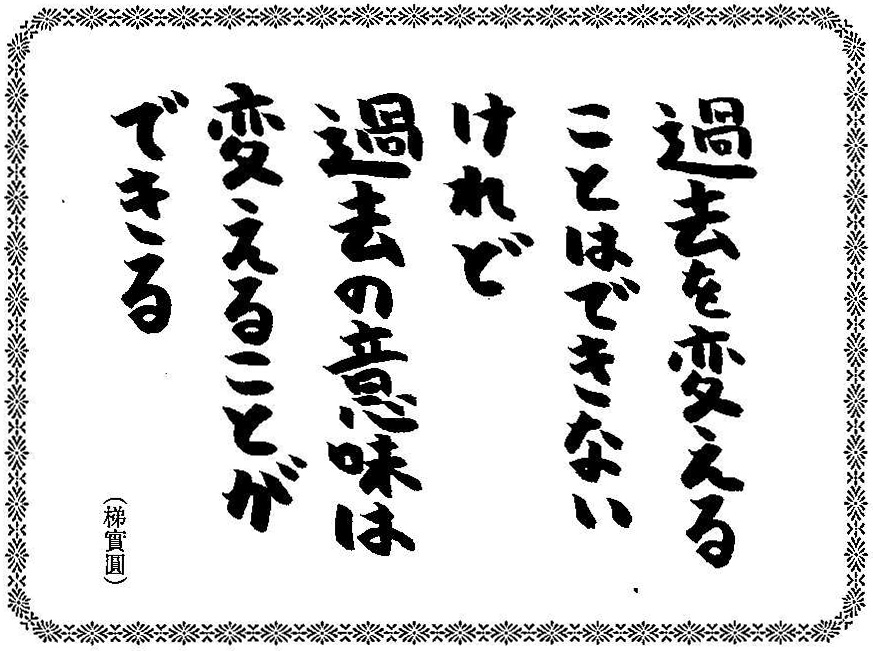 過去を変える
ことはできない
けれど
過去の意味は
変えることが
できる
(梯實圓)